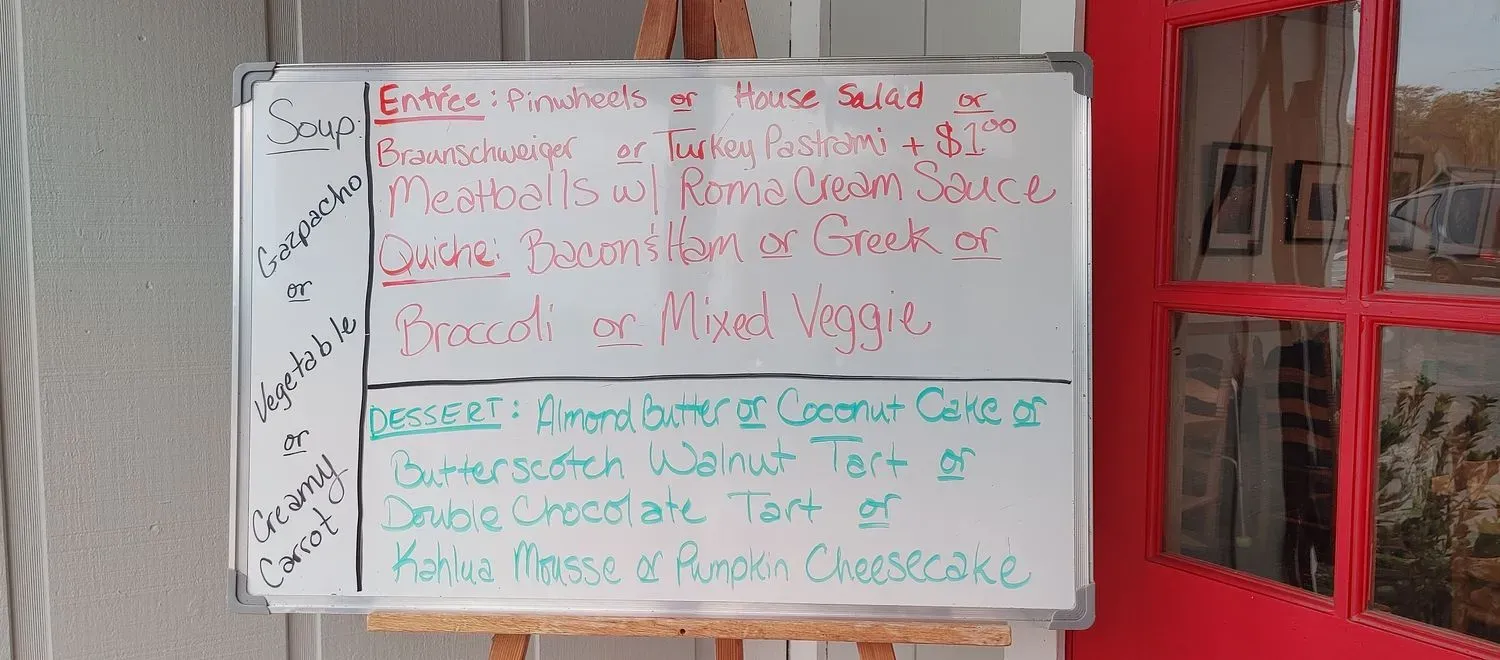 Soup:
Gazpacho
or
Vegetable
or
Creamy
Carrot
Entrée: Pinwheels or House Salad or
Braunschweiger or Turkey Pastrami + $1.00
Meatballs w/ Roma Cream Sauce
Quiche: Bacon & Ham or Greek or
Broccoli or Mixed Veggie
DESSERT: Almond Butter or Coconut Cake or
Butterscotch Walnut Tart or
Double Chocolate Tart or
Kahlua Mousse or Pumpkin Cheesecake